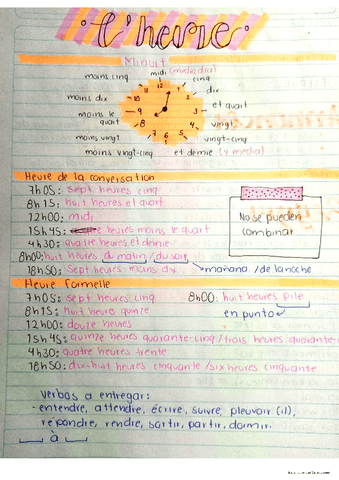 L'heure
Minuit
midi (mediodía)
moins cinq
cinq
moins dix
dix
moins le quart
et quart
moins vingt
vingt
moins vingt-cinq
vingt-cinq
et demie (y media)
12 1 2 3 4 5 6 7 8 9 10 11
Heure de la conversation
7h05: Sept heures cinq
8h15: huit heures et quart
12h00: midi
15h45: heures moins le quart
4h30: quatre heures et demie
8h00: huit heures du matin / du soir
18h50: Sept heures moins dix
→ mañana / de la noche
No se pueden
combinar
Heure formelle
7h05: sept heures cinq
8h15: huit heures quinze
12h00: douze heures
15h45: quinze heures quarante-cinq / trois heures quarante-
4h30: quatre heures trente
18h50: dix-huit heures cinquante / six heures cinquante
8h00: huit heures pile
en punto
Verbos a entregar:
- entendre, attendre, écrire, suivre, pleuvoir (il),
répondre, rendre, sortir, partir, dormir.
à